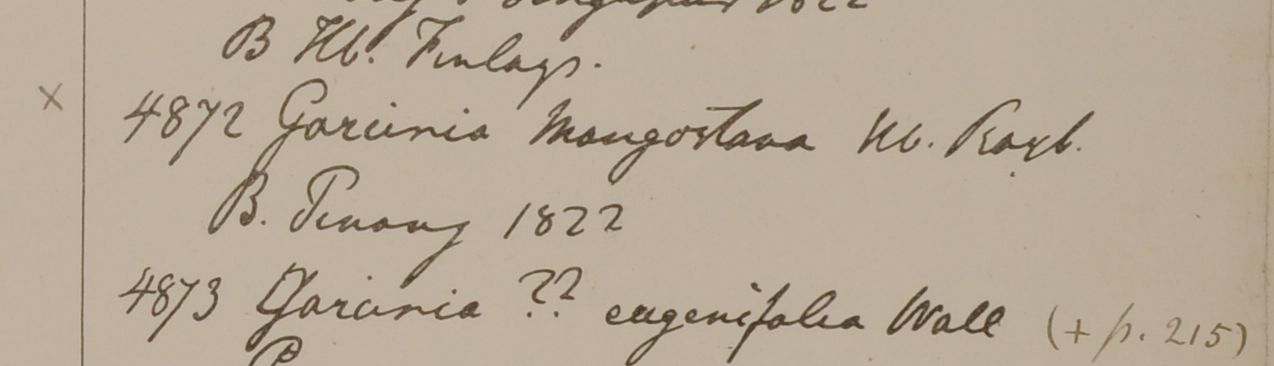 Singapore 1822
B Hb. Finlays.
× 4872 Garcinia Mangostana Hb. Roxb.
B. Penang 1822
4873 Garcinia ?? eugenifolia Wall (+ p. 215)